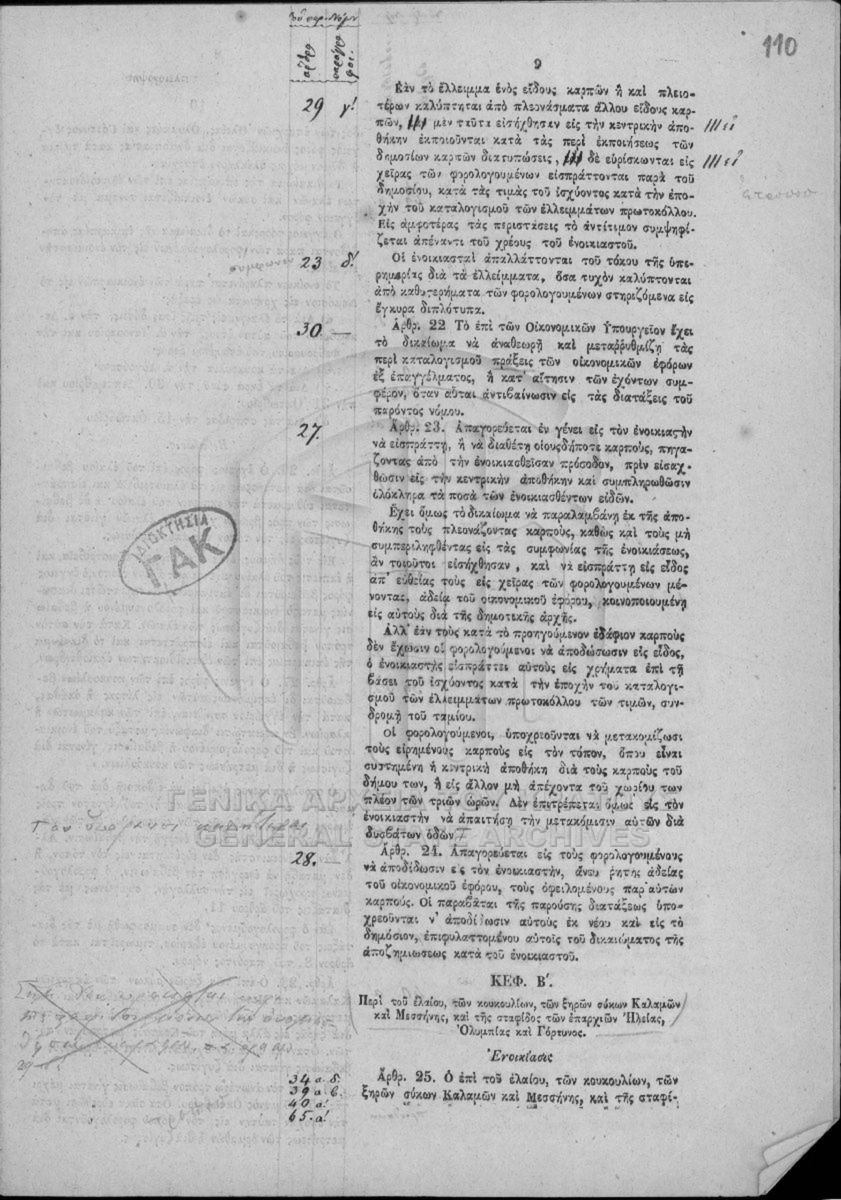 110
9
ἄρθρ
παράγρ
29 γ'.
Ἐὰν τὸ ἔλλειμμα ἑνὸς εἴδους καρπῶν ἢ καὶ πλειο-
τέρων καλύπτηται ἀπὸ πλεονάσματα ἄλλου εἴδους καρ-
πῶν, μὲν ταῦτα εἰσήχθησαν εἰς τὴν κεντρικὴν ἀπο-
θήκην ἐκποιοῦνται κατὰ τὰς περὶ ἐκποιήσεως τῶν
δημοσίων καρπῶν διατυπώσεις, δὲ εὑρίσκωνται εἰς
χεῖρας τῶν φορολογουμένων εἰσπράττονται παρὰ τοῦ
δημοσίου, κατὰ τὰς τιμὰς τοῦ ἰσχύοντος κατὰ τὴν ἐπο-
χὴν τοῦ καταλογισμοῦ τῶν ἐλλειμμάτων πρωτοκόλλου.
Εἰς ἀμφοτέρας τὰς περιστάσεις τὸ ἀντίτιμον συμψηφί-
ζεται ἀπέναντι τοῦ χρέους τοῦ ἐνοικιαστοῦ.
23 δ'.
Οἱ ἐνοικιασταὶ ἀπαλλάττονται τοῦ τόκου τῆς ὑπε-
ρημερίας διὰ τὰ ἐλλείμματα, ὅσα τυχὸν καλύπτονται
ἀπὸ καθυστερήματα τῶν φορολογουμένων στηριζόμενα εἰς
ἔγκυρα διπλότυπα.
30 —
Ἄρθρ. 22 Τὸ ἐπὶ τῶν Οἰκονομικῶν Ὑπουργεῖον ἔχει
τὸ δικαίωμα νὰ ἀναθεωρῇ καὶ μεταῤῥυθμίζῃ τὰς
περὶ καταλογισμοῦ πράξεις τῶν οἰκονομικῶν ἐφόρων
ἐξ ἐπαγγέλματος, ἢ κατ' αἴτησιν τῶν ἐχόντων συμ-
φέρον, ὅταν αὗται ἀντιβαίνωσιν εἰς τὰς διατάξεις τοῦ
παρόντος νόμου.
27.
Ἄρθρ. 23. Ἀπαγορεύεται ἐν γένει εἰς τὸν ἐνοικιαστὴν
νὰ εἰσπράττῃ, ἢ νὰ διαθέτῃ οἱουσδήποτε καρπούς, πηγά-
ζοντας ἀπὸ τὴν ἐνοικιασθεῖσαν πρόσοδον, πρὶν εἰσαχ-
θῶσιν εἰς τὴν κεντρικὴν ἀποθήκην καὶ συμπληρωθῶσιν
ὁλόκληρα τὰ ποσὰ τῶν ἐνοικιασθέντων εἰδῶν.
Ἔχει ὅμως τὸ δικαίωμα νὰ παραλαμβάνῃ ἐκ τῆς ἀπο-
θήκης τοὺς πλεονάζοντας καρπούς, καθὼς καὶ τοὺς μὴ
συμπεριληφθέντας εἰς τὰς συμφωνίας τῆς ἐνοικιάσεως,
ἂν τοιοῦτοι εἰσήχθησαν, καὶ νὰ εἰσπράττῃ εἰς εἶδος
ἀπ' εὐθείας τοὺς εἰς χεῖρας τῶν φορολογουμένων μέ-
νοντας, ἀδείᾳ τοῦ οἰκονομικοῦ ἐφόρου, κοινοποιουμένῃ
εἰς αὐτοὺς διὰ τῆς δημοτικῆς ἀρχῆς.
Ἀλλ' ἐὰν τοὺς κατὰ τὸ προηγούμενον ἐδάφιον καρποὺς
δὲν ἔχωσιν οἱ φορολογούμενοι νὰ ἀποδώσωσιν εἰς εἶδος,
ὁ ἐνοικιαστὴς εἰσπράττει αὐτοὺς εἰς χρήματα ἐπὶ τῇ
βάσει τοῦ ἰσχύοντος κατὰ τὴν ἐποχὴν τοῦ καταλογι-
σμοῦ τῶν ἐλλειμμάτων πρωτοκόλλου τῶν τιμῶν, συν-
δρομῇ τοῦ ταμίου.
Οἱ φορολογούμενοι, ὑποχρεοῦνται νὰ μετακομίζωσι
τοὺς εἰρημένους καρποὺς εἰς τὸν τόπον, ὅπου εἶναι
συστημένη ἡ κεντρικὴ ἀποθήκη διὰ τοὺς καρποὺς τοῦ
δήμου των, ἢ εἰς ἄλλον μὴ ἀπέχοντα τοῦ χωρίου των
πλέον τῶν τριῶν ὡρῶν. Δὲν ἐπιτρέπεται ὅμως εἰς τὸν
ἐνοικιαστὴν νὰ ἀπαιτήσῃ τὴν μετακόμισιν αὐτῶν διὰ
δυσβάτων ὁδῶν.
28. —
Ἄρθρ. 24. Ἀπαγορεύεται εἰς τοὺς φορολογουμένους
νὰ ἀποδίδωσιν εἰς τὸν ἐνοικιαστήν, ἄνευ ῥητῆς ἀδείας
τοῦ οἰκονομικοῦ ἐφόρου, τοὺς ὀφειλομένους παρ' αὐτῶν
καρπούς. Οἱ παραβάται τῆς παρούσης διατάξεως ὑπο-
χρεοῦνται ν' ἀποδίδωσιν αὐτοὺς ἐκ νέου καὶ εἰς τὸ
δημόσιον, ἐπιφυλαττομένου αὐτοῖς τοῦ δικαιώματος τῆς
ἀποζημιώσεως κατὰ τοῦ ἐνοικιαστοῦ.
ΚΕΦ. Β'.
Περὶ τοῦ ἐλαίου, τῶν κουκουλίων, τῶν ξηρῶν σύκων Καλαμῶν
καὶ Μεσσήνης, καὶ τῆς σταφίδος τῶν ἐπαρχιῶν Ἠλείας,
Ὀλυμπίας καὶ Γόρτυνος.
Ἐνοικίασις
34 α. δ.
39 α. β.
40 α'
65. α'.
Ἄρθρ. 25. Ὁ ἐπὶ τοῦ ἐλαίου, τῶν κουκουλίων, τῶν
ξηρῶν σύκων Καλαμῶν καὶ Μεσσήνης, καὶ τῆς σταφί-
ΙΔΙΟΚΤΗΣΙΑ
ΓΑΚ
ΓΕΝΙΚΑ ΑΡΧΕΙΑ ΤΟΥ ΚΡΑΤΟΥΣ
GENERAL STATE ARCHIVES